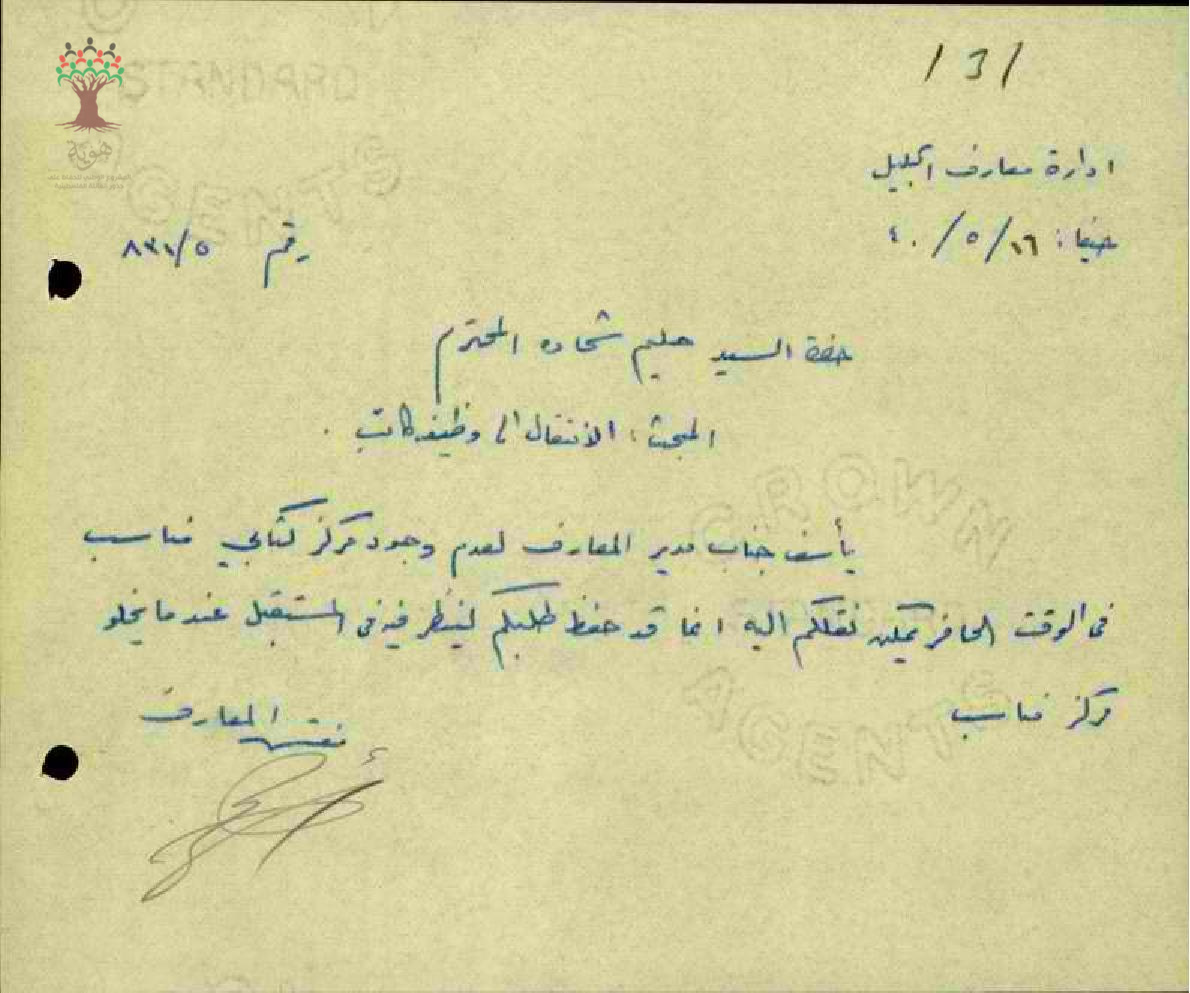 / 3 /
ادارة معارف الجليل
حيفا : ١٦ / ٥ / ٤٠
رقم ٥/
حضرة السيد حليم شحاده المحترم
المبحث : الانتقال الى وظيفه كاتب .
يأسف جناب مدير المعارف لعدم وجود مركز كتابي مناسب
في الوقت الحاضر يمكن نقلكم اليه انما قد حفظ طلبكم لينظر فيه في المستقبل عندما يخلو
مركز مناسب
مفتش المعارف
هوية
STANDARD
AGENTS
CROWN
AGENTS